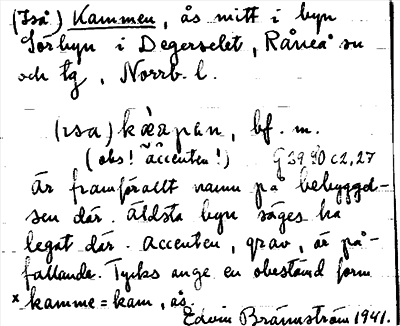 (Iså) Kammen, ås mitt i byn
Sörbyn i Degerselet, Råneå sn
och tg, Norrb. l.
(ısa) kàmən, bf. m.
(obs! accenten!) G 39 90 c2, 27
Är framförallt namn på bebyggel-
sen där. Äldsta byn säges ha
legat där. Accenten, grav, är på-
fallande. Tycks ange en obestämd form
*kamme = kam, ås.
Edvin Brännström 1941.